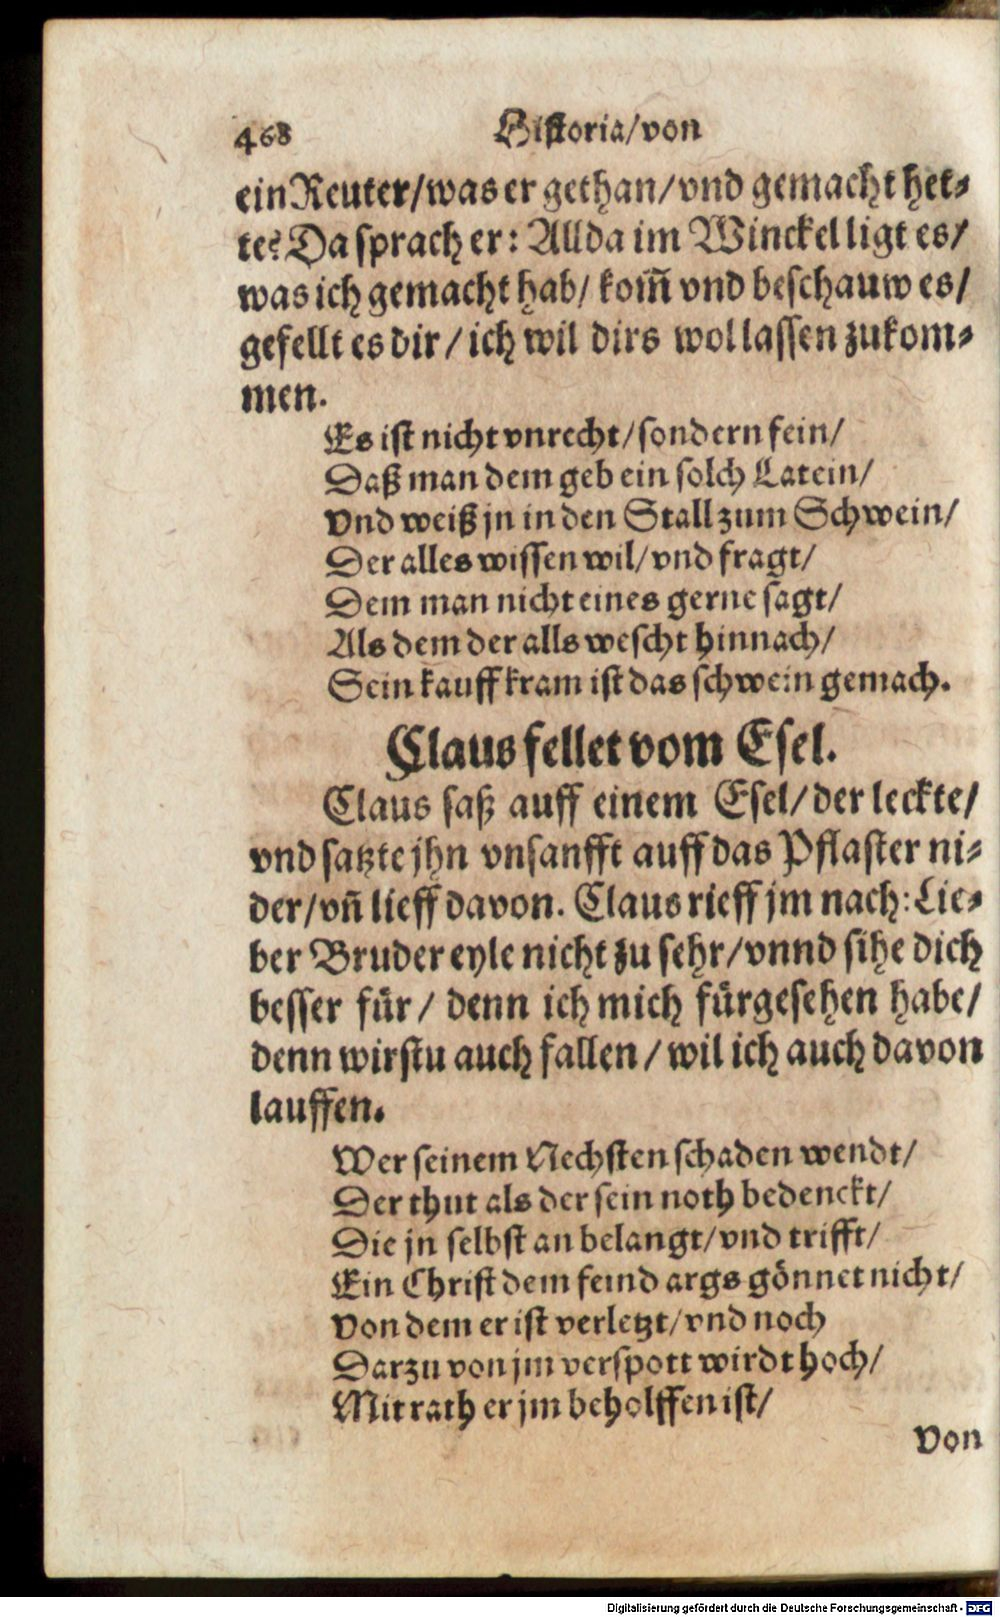 468 Historia/von
ein Reuter/was er gethan/vnd gemacht het⸗
te? Da sprach er: Allda im Winckel ligt es/
was ich gemacht hab/ kom̃ vnd beschauw es/
gefellt es dir/ich wil dirs wol lassen zukom⸗
men.
Es ist nicht vnrecht/sondern fein/
Daß man dem geb ein solch Latein/
Vnd weiß jn in den Stall zum Schwein/
Der alles wissen wil/vnd fragt/
Dem man nicht eines gerne sagt/
Als dem der alls wescht hinnach/
Sein kauffkram ist das schwein gemach.
Claus fellet vom Esel.
Claus saß auff einem Esel/der leckte/
vnd satzte jhn vnsanfft auff das Pflaster ni⸗
der/vñ lieff davon. Claus rieff jm nach: Lie⸗
ber Bruder eyle nicht zu sehr/vnnd sihe dich
besser für/ denn ich mich fürgesehen habe/
denn wirstu auch fallen/wil ich auch davon
lauffen.
Wer seinem Nechsten schaden wendt/
Der thut als der sein noth bedenckt/
Die jn selbst an belangt/vnd trifft/
Ein Christ dem feind args gönnet nicht/
Von dem er ist verletzt/vnd noch
Darzu von jm verspott wirdt hoch/
Mit rath er jm beholffen ist/
Von
Digitalisierung gefördert durch die Deutsche Forschungsgemeinschaft - DFG